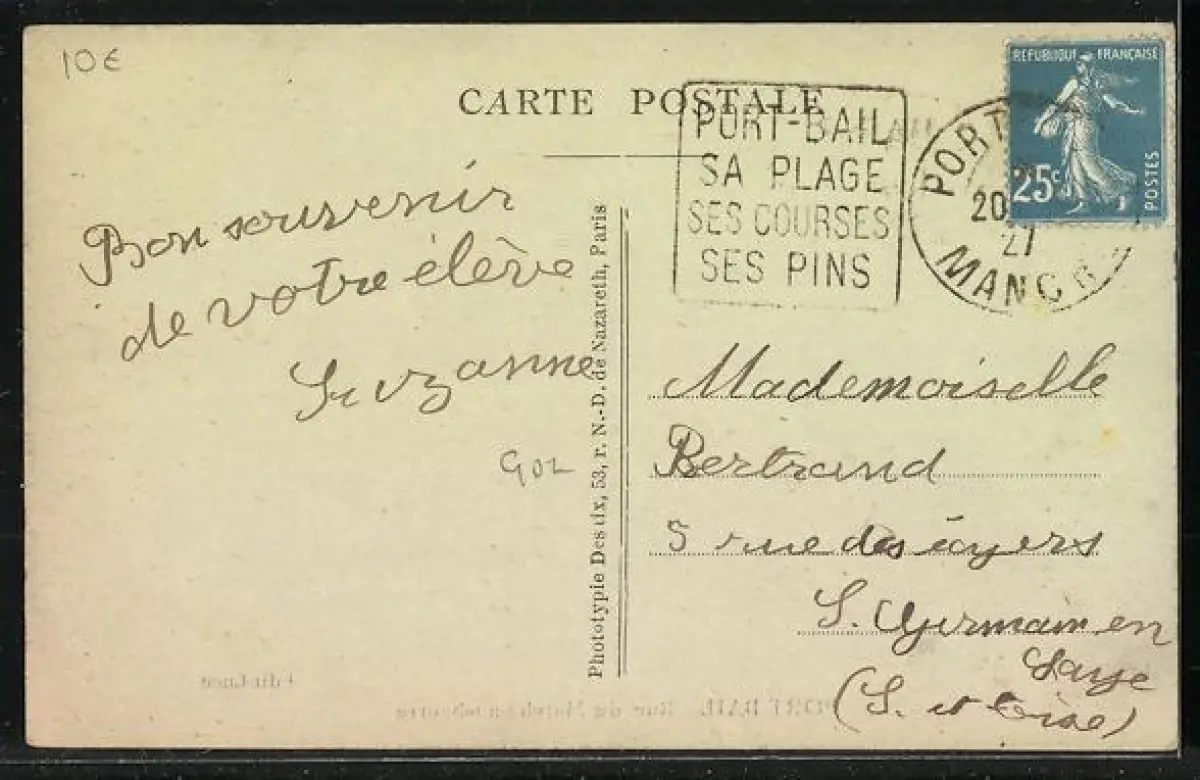 10€
CARTE POSTALE
PORT-BAIL
SA PLAGE
SES COURSES
SES PINS
PORT
20
27
MANCH
REPUBLIQUE FRANÇAISE
25c
POSTES
Bon souvenir
de votre élève
Suzanne
Phototypie Desaix, 53, r. N.-D. de Nazareth, Paris
Mademoiselle
Bertrand
5 rue des
S. Germain en
Laye
(S. et Oise)
PORT BAIL Rue du